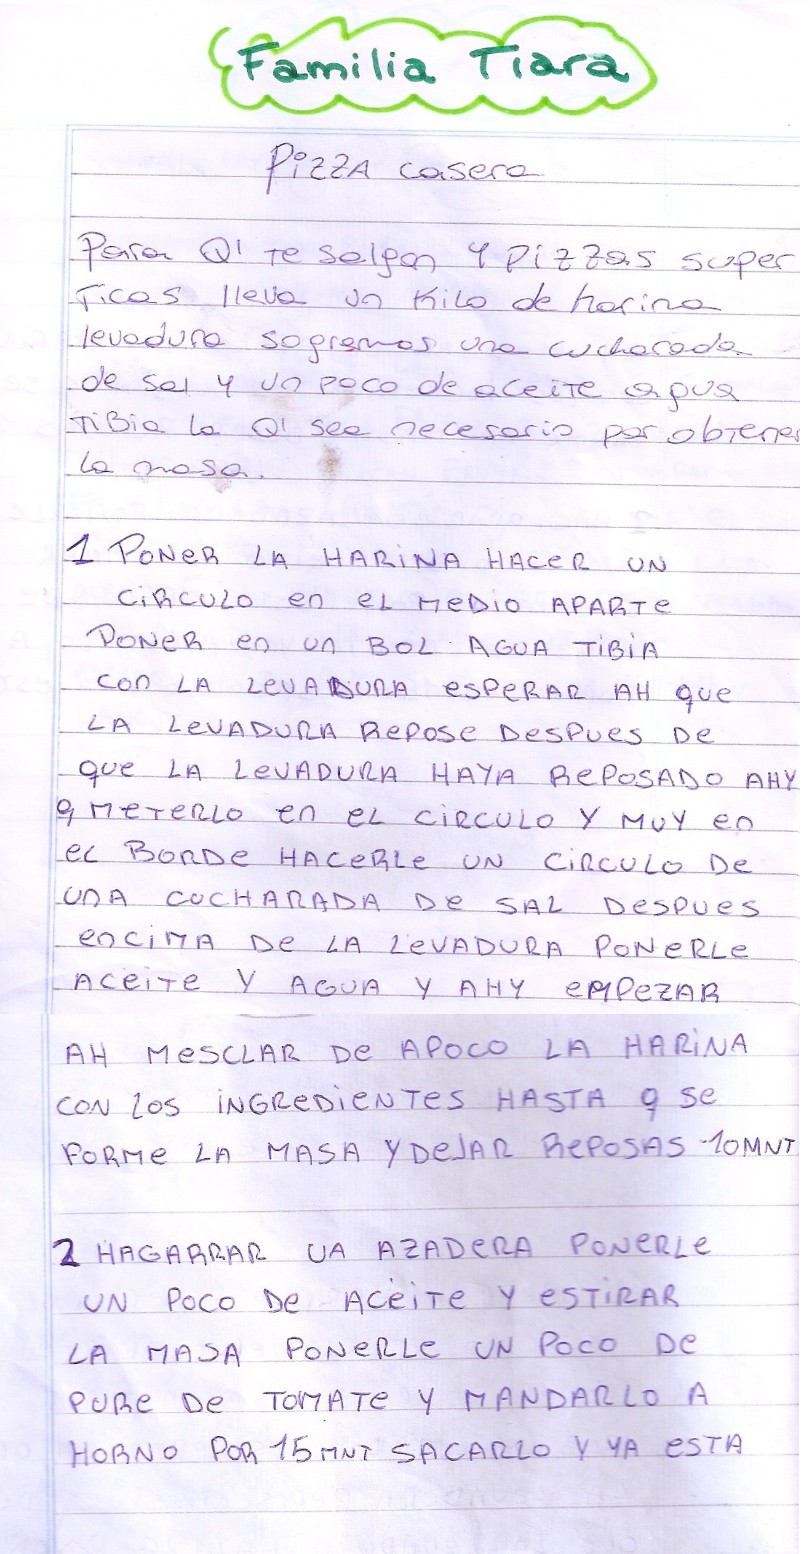 Familia Tiara
Pizza casera
Para Q' te salgan 4 pizzas super
ricas lleva un kilo de harina
levadura sogremos una cucharada
de sal y un poco de aceite agua
tibia la Q' sea necesario par obtener
la masa.
1 PONER LA HARINA HACER UN
CIRCULO en eL MEDIO APARTE
PONER en un BOL AGUA TIBIA
con LA LEVADURA ESPERAR AH que
LA LEVADURA REPOSE DESPUES DE
que LA LEVADURA HAYA REPOSADO AHY
q METERLO en eL CIRCULO Y MUY en
eL BORDE HACERLE UN CIRCULO DE
UNA COCHARADA DE SAL DESPUES
encIMA DE LA LEVADURA PONERLE
ACEITE Y AGUA Y AHY EMPEZAR
AH MESCLAR DE APOCO LA HARINA
CON LOS INGREDIENTES HASTA q SE
FORME LA MASA Y DEJAR REPOSAS 10MNT
2 HAGARRAR UA AZADERA PONERLE
UN POCO DE ACEITE Y ESTIRAR
LA MASA PONERLE UN POCO DE
PURE DE TOMATE Y MANDARLO A
HORNO POR 15 MNT SACARLO Y YA ESTA